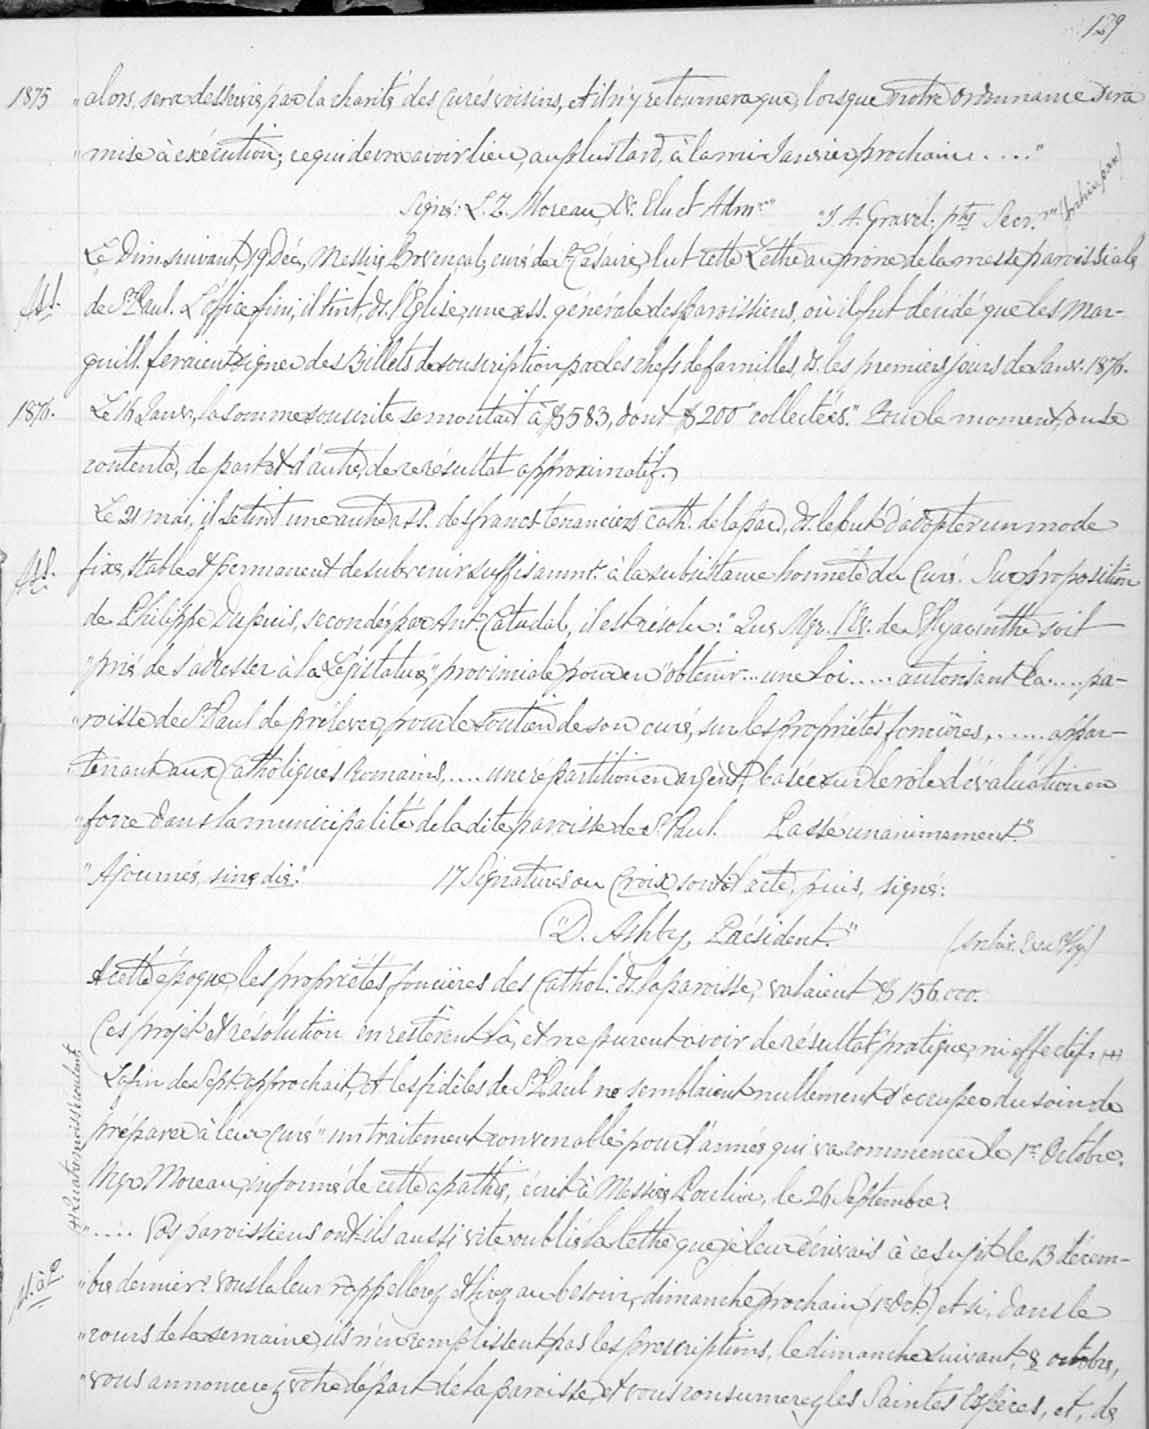 129
1875 "alors, sera desservie par la charité des curés voisins, et il n'y retournera que, lorsque notre Ordonnance sera
"mise à exécution; ce qui devra avoir lieu, au plus tard, à la mi Janvier prochain....."
Signé: L. Z. Moreau, Ev. Elu et Adm.r" "J. A. Gravel, ptre Secr." (Archiv. par.)
Le Dim. suivant, 19 Déc., Messire Provençal, curé de St Césaire, lut cette Lettre au prône de la messe paroissiale
Ass. de St Paul. L'office fini, il tint, ds. l'Eglise, une ass. générale des paroissiens, où il fut décidé que les Mar-
guill. feraient signer des Billets de souscription par les chefs de familles, ds. les premiers jours de Janv. 1876.
1876. Le 16 Janv., la somme souscrite se montait à $583, dont $200 "collectées". Pour le moment, on se
contenta, de part et d'autre, de ce résultat approximatif.
Le 21 mai, il se tint une autre ass. des francs-tenanciers cath. de la par., ds. le but d'adopter un mode
Ass. fixe, stable et permanent de subvenir suffisamnt. à la subsistance honnête du Curé. Sur proposition
de Philippe Dupuis, secondé par Ant. Catudal, il est résolu: "Que Mgr. l'Ev. de St Hyacinthe soit
"prié de s'adresser à la Législature provinciale pour en "obtenir... une Loi ..... autorisant la .... pa-
"roisse de St Paul de prélever, pour le soutien de son curé, sur les propriétés foncières, ...... appar-
"tenant aux Catholiques Romains, .... une répartition en argent, basée sur le rôle d'évaluation en
"force dans la municipalité de la dite paroisse de St. Paul. Passé unanimement."
"Ajourné, sine die." 17 Signatures ou Croix sont à l'acte, puis, signé:
"D. Ashby, Président." (Archiv. Ev. St Hy.)
A cette époque, les propriétés foncières des Cathol. ds. la paroisse, valaient $156.000.
Ces projet et résolution en restèrent là, et ne purent avoir de résultat pratique, ni effectif. (+)
La fin de Sept. approchait, et les fidèles de St Paul ne semblaient nullement s'occuper du soin de
préparer à leur curé "un traitement convenable pour l'année qui va commencer le 1er Octobre.
Mgr Moreau, informé de cette apathie, écrit à Messire Poulin, le 26 Septembre:
"..... Vos paroissiens ont-ils aussi vite oublié la lettre que je leur écrivais à ce sujet le 13 décem-
"bre dernier? Vous la leur rappellerez et lirez au besoin, dimanche prochain (1 Oct.) et si, dans le
"cours de la semaine, ils n'en remplissent pas les prescriptions, le dimanche suivant, 8 octobre,
"vous annoncerez votre départ de la paroisse, et vous consumerez les Saintes Espèces, et, de